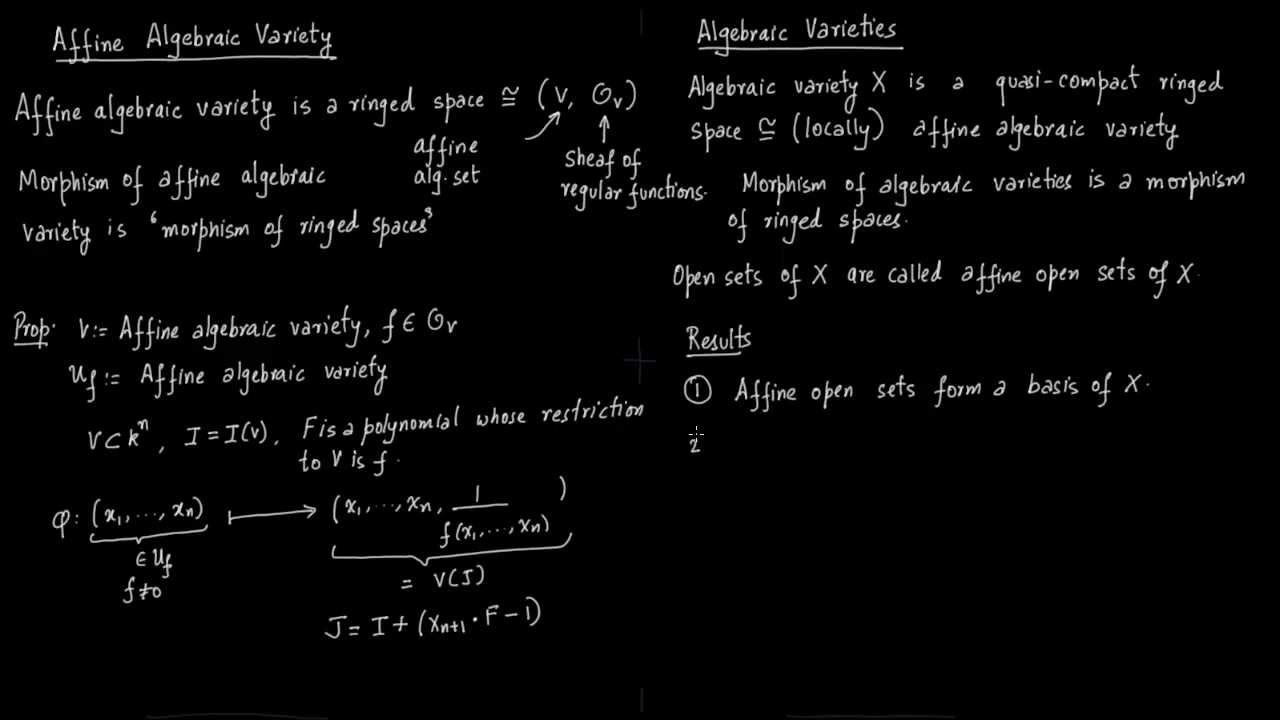 Affine Algebraic Variety
Affine algebraic variety is a ringed space ≅ (V, O_V)
affine
alg. set
Sheaf of
regular functions.
Morphism of affine algebraic
variety is ‘morphism of ringed spaces’
Prop. V := Affine algebraic variety, f ∈ O_V
U_f := Affine algebraic variety
V ⊂ k^n, I = I(V), F is a polynomial whose restriction
to V is f.
φ : (x_1, ..., x_n) ↦ (x_1, ..., x_n, 1/f(x_1, ..., x_n))
∈ U_f
f ≠ 0
= V(J)
J = I + (X_{n+1} · F − 1)
Algebraic Varieties
Algebraic variety X is a quasi-compact ringed
space ≅ (locally) affine algebraic variety
Morphism of algebraic varieties is a morphism
of ringed spaces.
Open sets of X are called affine open sets of X.
Results
① Affine open sets form a basis of X.
2